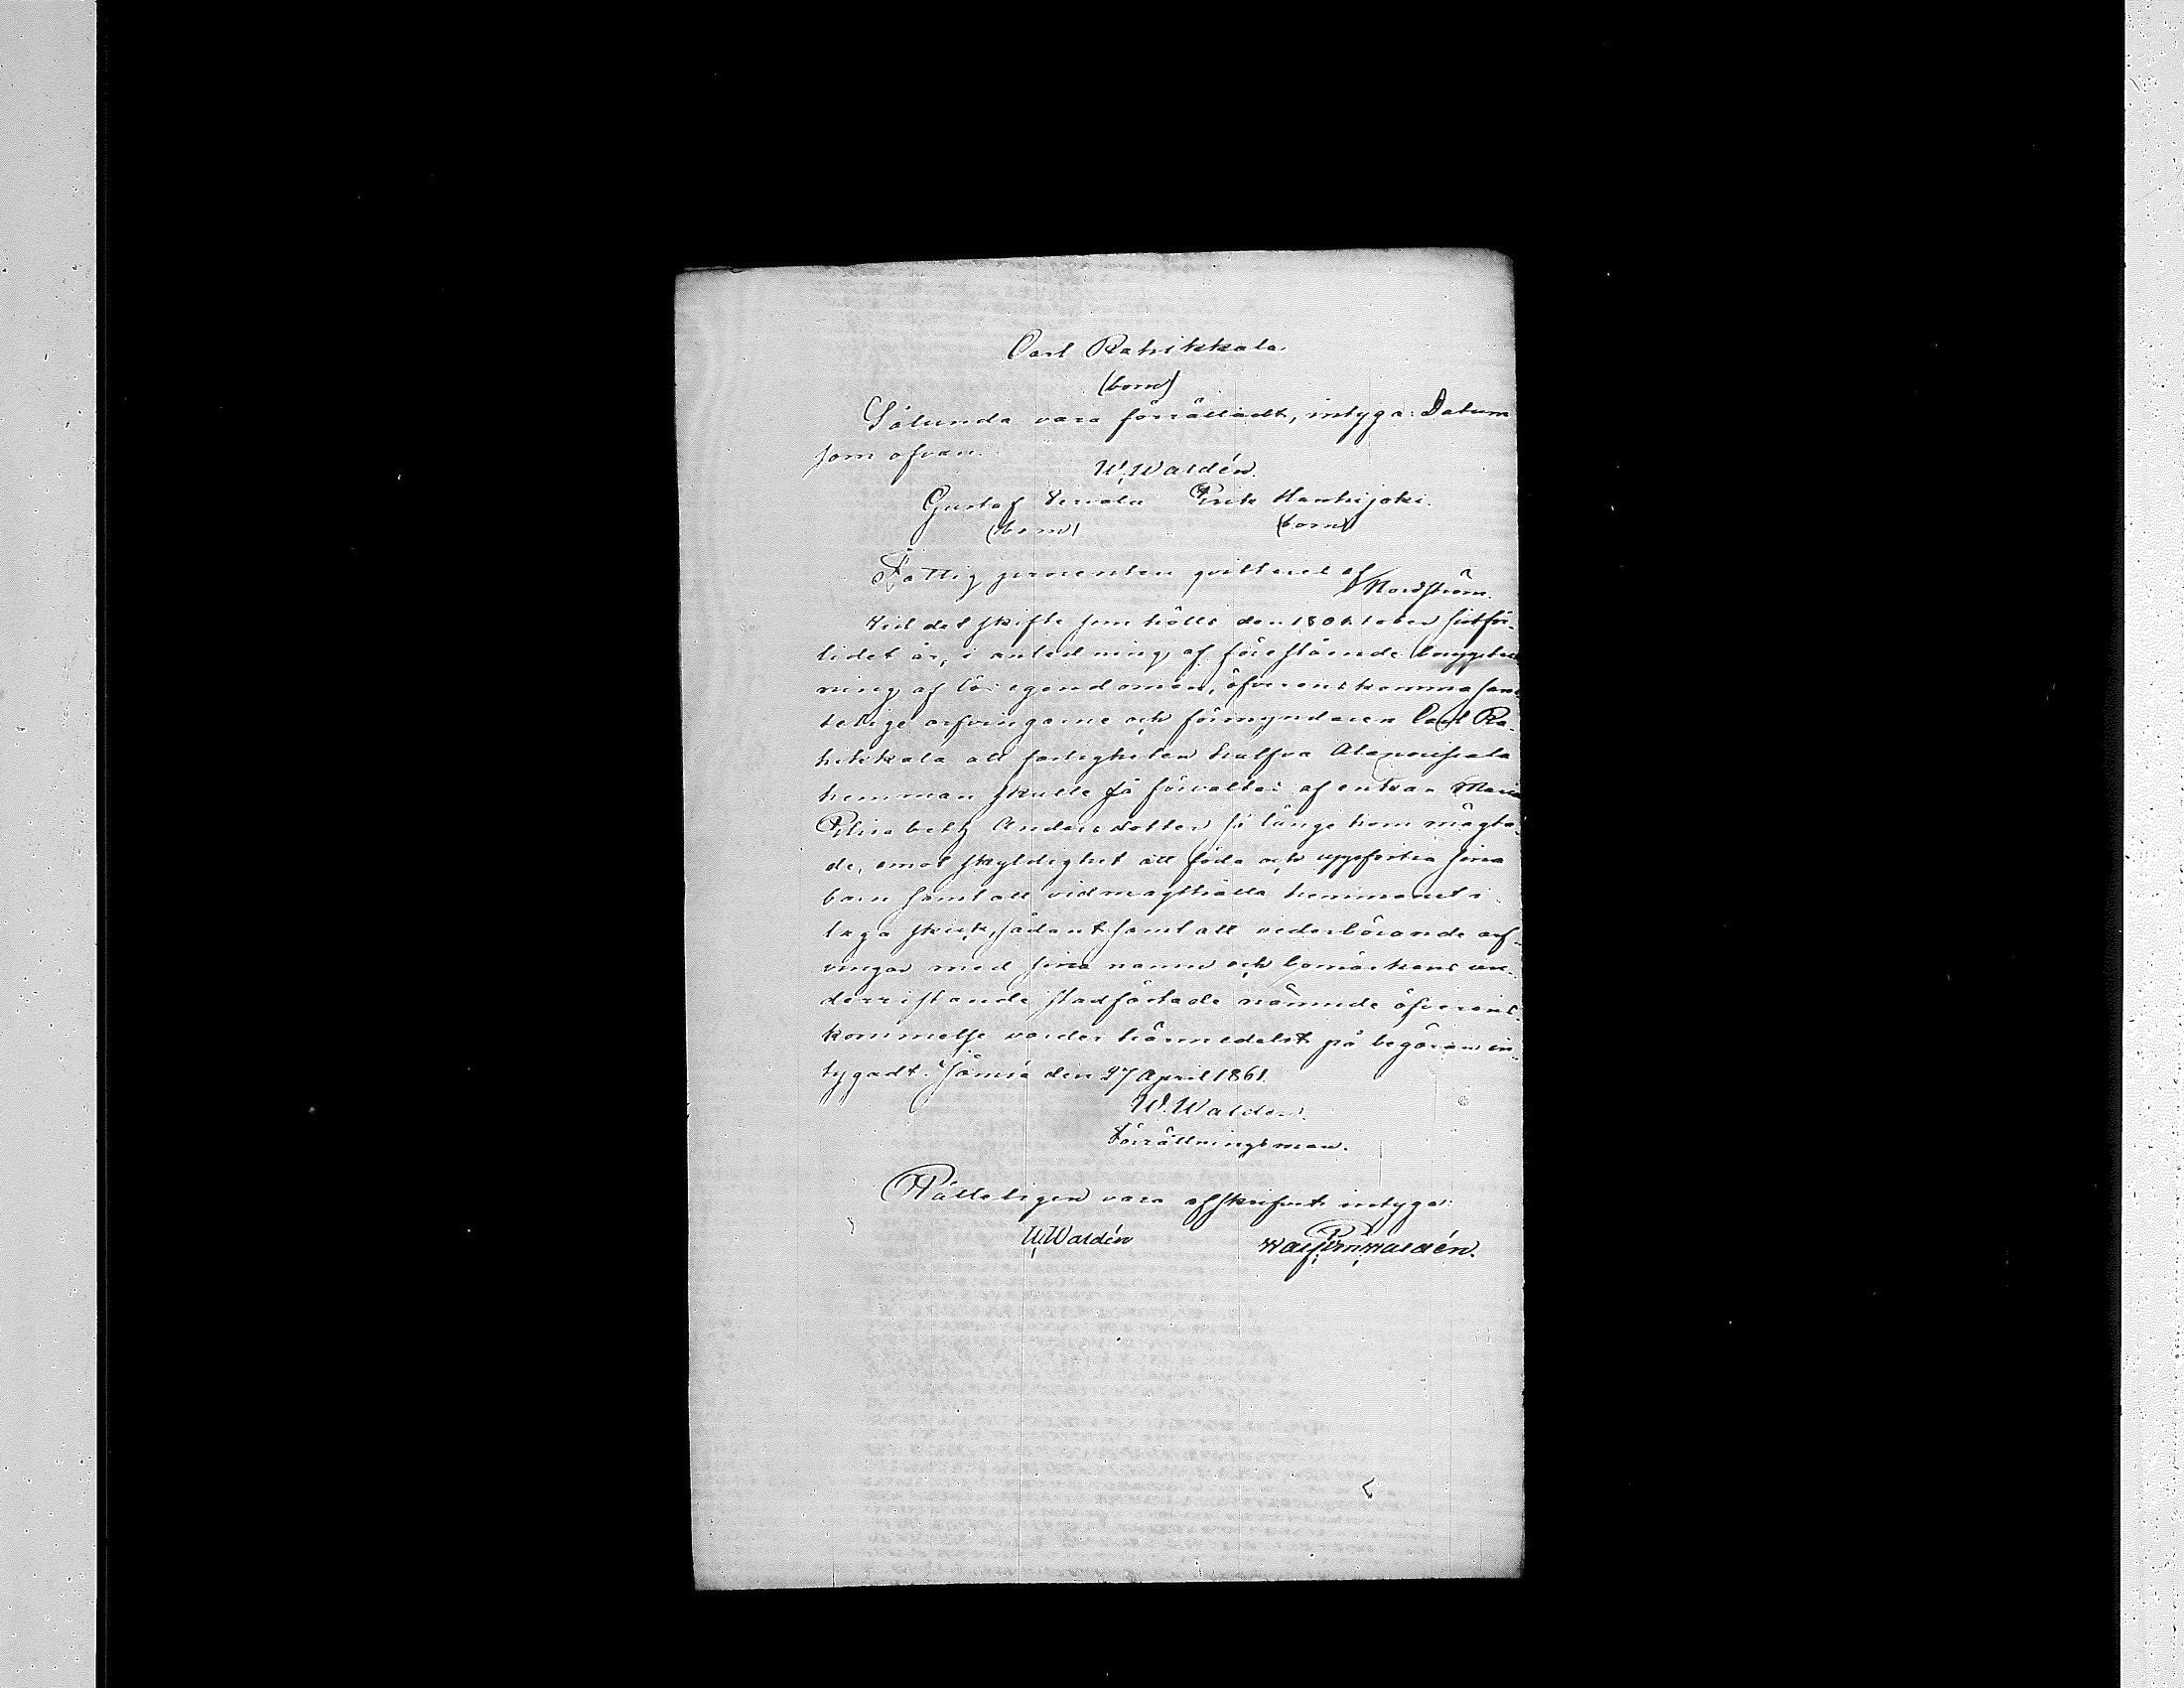 Carl Rahikkala.
(bom)
Sålunda vara förrättadt, intyga: Datum
som ofvan.
W. Waldén.
Gustaf Erik Hanhijoki.
(bom) (bom)
Fattig procenten qvitterad af
Nordström.
Vid det skifte som hölls den 18 October sistför-
lidet år, i anledning af förestående bouppteck-
ning af lös egendomen, öfverenskommo sam-
telige arfvingarne och förmyndaren Carl Ra-
hikkala att fastigheten halfva
hemman skulle få förvaltas af enkan Maria
Elisabeth Andersdotter så länge hon mägta-
de, emot skyldighet att föda och uppfostra sina
barn samt att vidmagthålla hemmanet i
laga skick, sådant samt att vederbörande arf-
vingar med sina namn och bomärkens un-
derristande stadfästade nämnde öfverens-
kommelse varder härmedelst på begäran in-
tygadt. Jämsä den 27 April 1861.
W. Waldén.
Förrättningsman.
Rätteligen vara afskrifvet intyga:
W. Waldén Waldén.